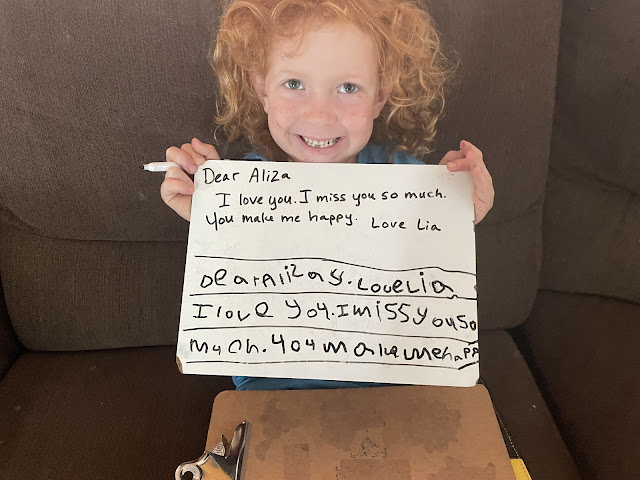 Dear Aliza
I love you. I miss you so much.
You make me happy. Love Lia
DearAlizay. LoveLia
I love you. I missyouso
much. you makemehapp